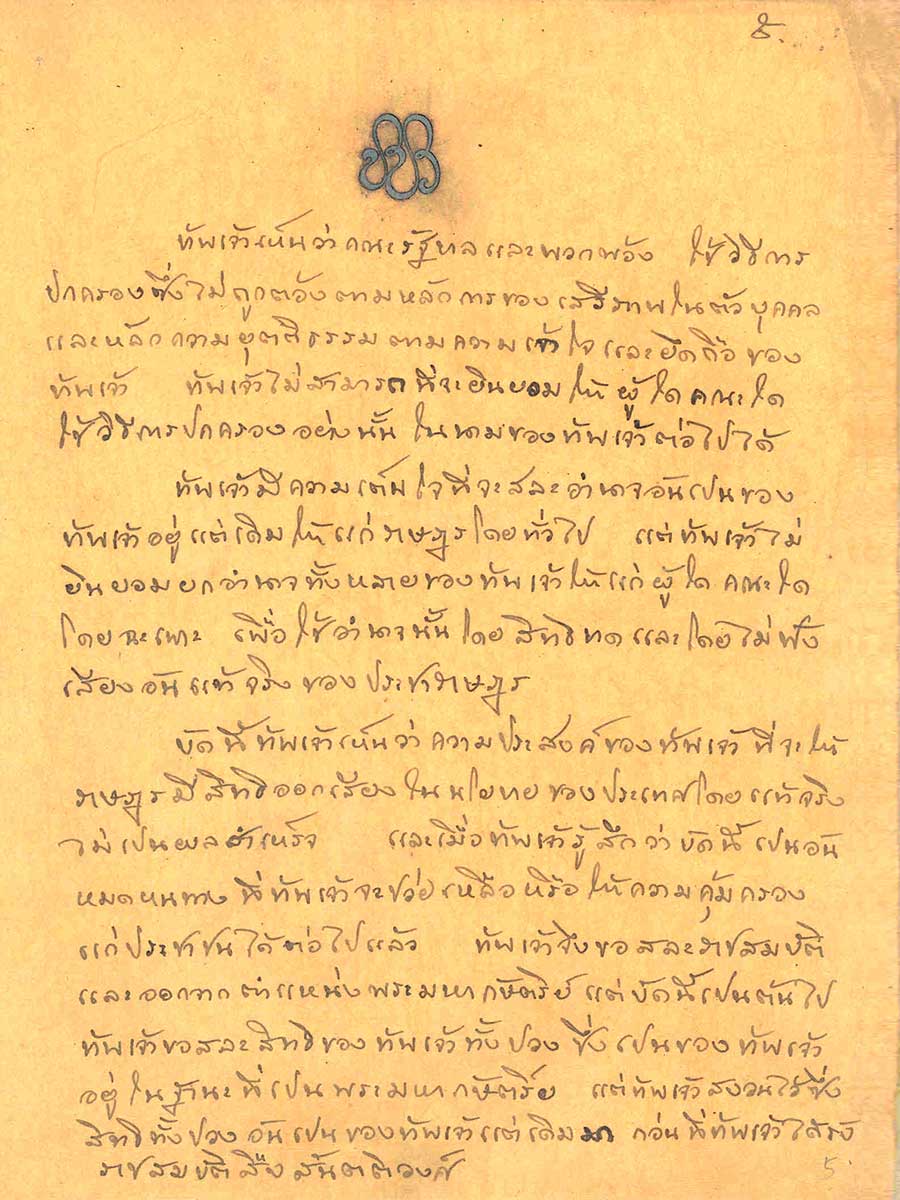 ๕.
ข้าพเจ้าเห็นว่าคณะรัฐบาลและพวกพ้อง ใช้วิธีการ
ปกครองซึ่งไม่ถูกต้องตามหลักการของเสรีภาพในตัวบุคคล
และหลักความยุตติธรรมตามความเข้าใจและยึดถือของ
ข้าพเจ้า ข้าพเจ้าไม่สามารถที่จะยินยอมให้ผู้ใดคณะใด
ใช้วิธีการปกครองอย่างนั้นในนามของข้าพเจ้าต่อไปได้
ข้าพเจ้ามีความเต็มใจที่จะสละอำนาจอันเปนของ
ข้าพเจ้าอยู่แต่เดิมให้แก่ราษฎรโดยทั่วไป แต่ข้าพเจ้าไม่
ยินยอมยกอำนาจทั้งหลายของข้าพเจ้าให้แก่ผู้ใด คณะใด
โดยฉะเพาะ เพื่อใช้อำนาจนั้นโดยสิทธิขาดและโดยไม่ฟัง
เสียงอันแท้จริงของประชาราษฎร
บัดนี้ข้าพเจ้าเห็นว่าความประสงค์ของข้าพเจ้าที่จะให้
ราษฎรมีสิทธิออกเสียงในนโยบายของประเทศโดยแท้จริง
ไม่เปนผลสำเหร็จ และเมื่อข้าพเจ้ารู้สึกว่าบัดนี้เปนอัน
หมดหนทางที่ข้าพเจ้าจะช่วยเหลือหรือให้ความคุ้มครอง
แก่ประชาชนได้ต่อไปแล้ว ข้าพเจ้าจึงขอสละราชสมบัติ
และออกจากตำแหน่งพระมหากษัตริย์แต่บัดนี้เปนต้นไป
ข้าพเจ้าขอสละสิทธิของข้าพเจ้าทั้งปวง ซึ่งเปนของข้าพเจ้า
อยู่ในฐานะที่เปนพระมหากษัตริย์ แต่ข้าพเจ้าสงวนไว้ซึ่ง
สิทธิทั้งปวงอันเปนของข้าพเจ้าแต่เดิมมา ก่อนที่ข้าพเจ้าได้รับ
ราชสมบัติสืบสันตติวงศ์
5